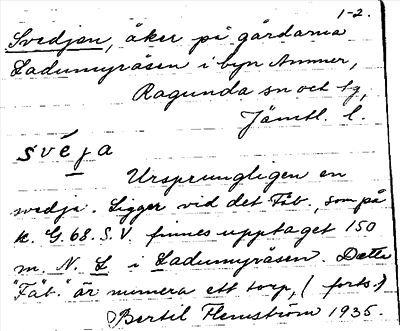 1-2.
Svedjen, åker på gårdarna
Ladumyråsen i byn Ammer,
Ragunda sn och tg,
Jämtl. l.
svéja
Ursprungligen en
svedja. Ligger vid det Fäb., som på
k. G. 68. S. V. finnes upptaget 150
m. N. L i Ladumyråsen. Detta
"Fäb." är numera ett torp, (forts.)
Bertil Flemström 1935.